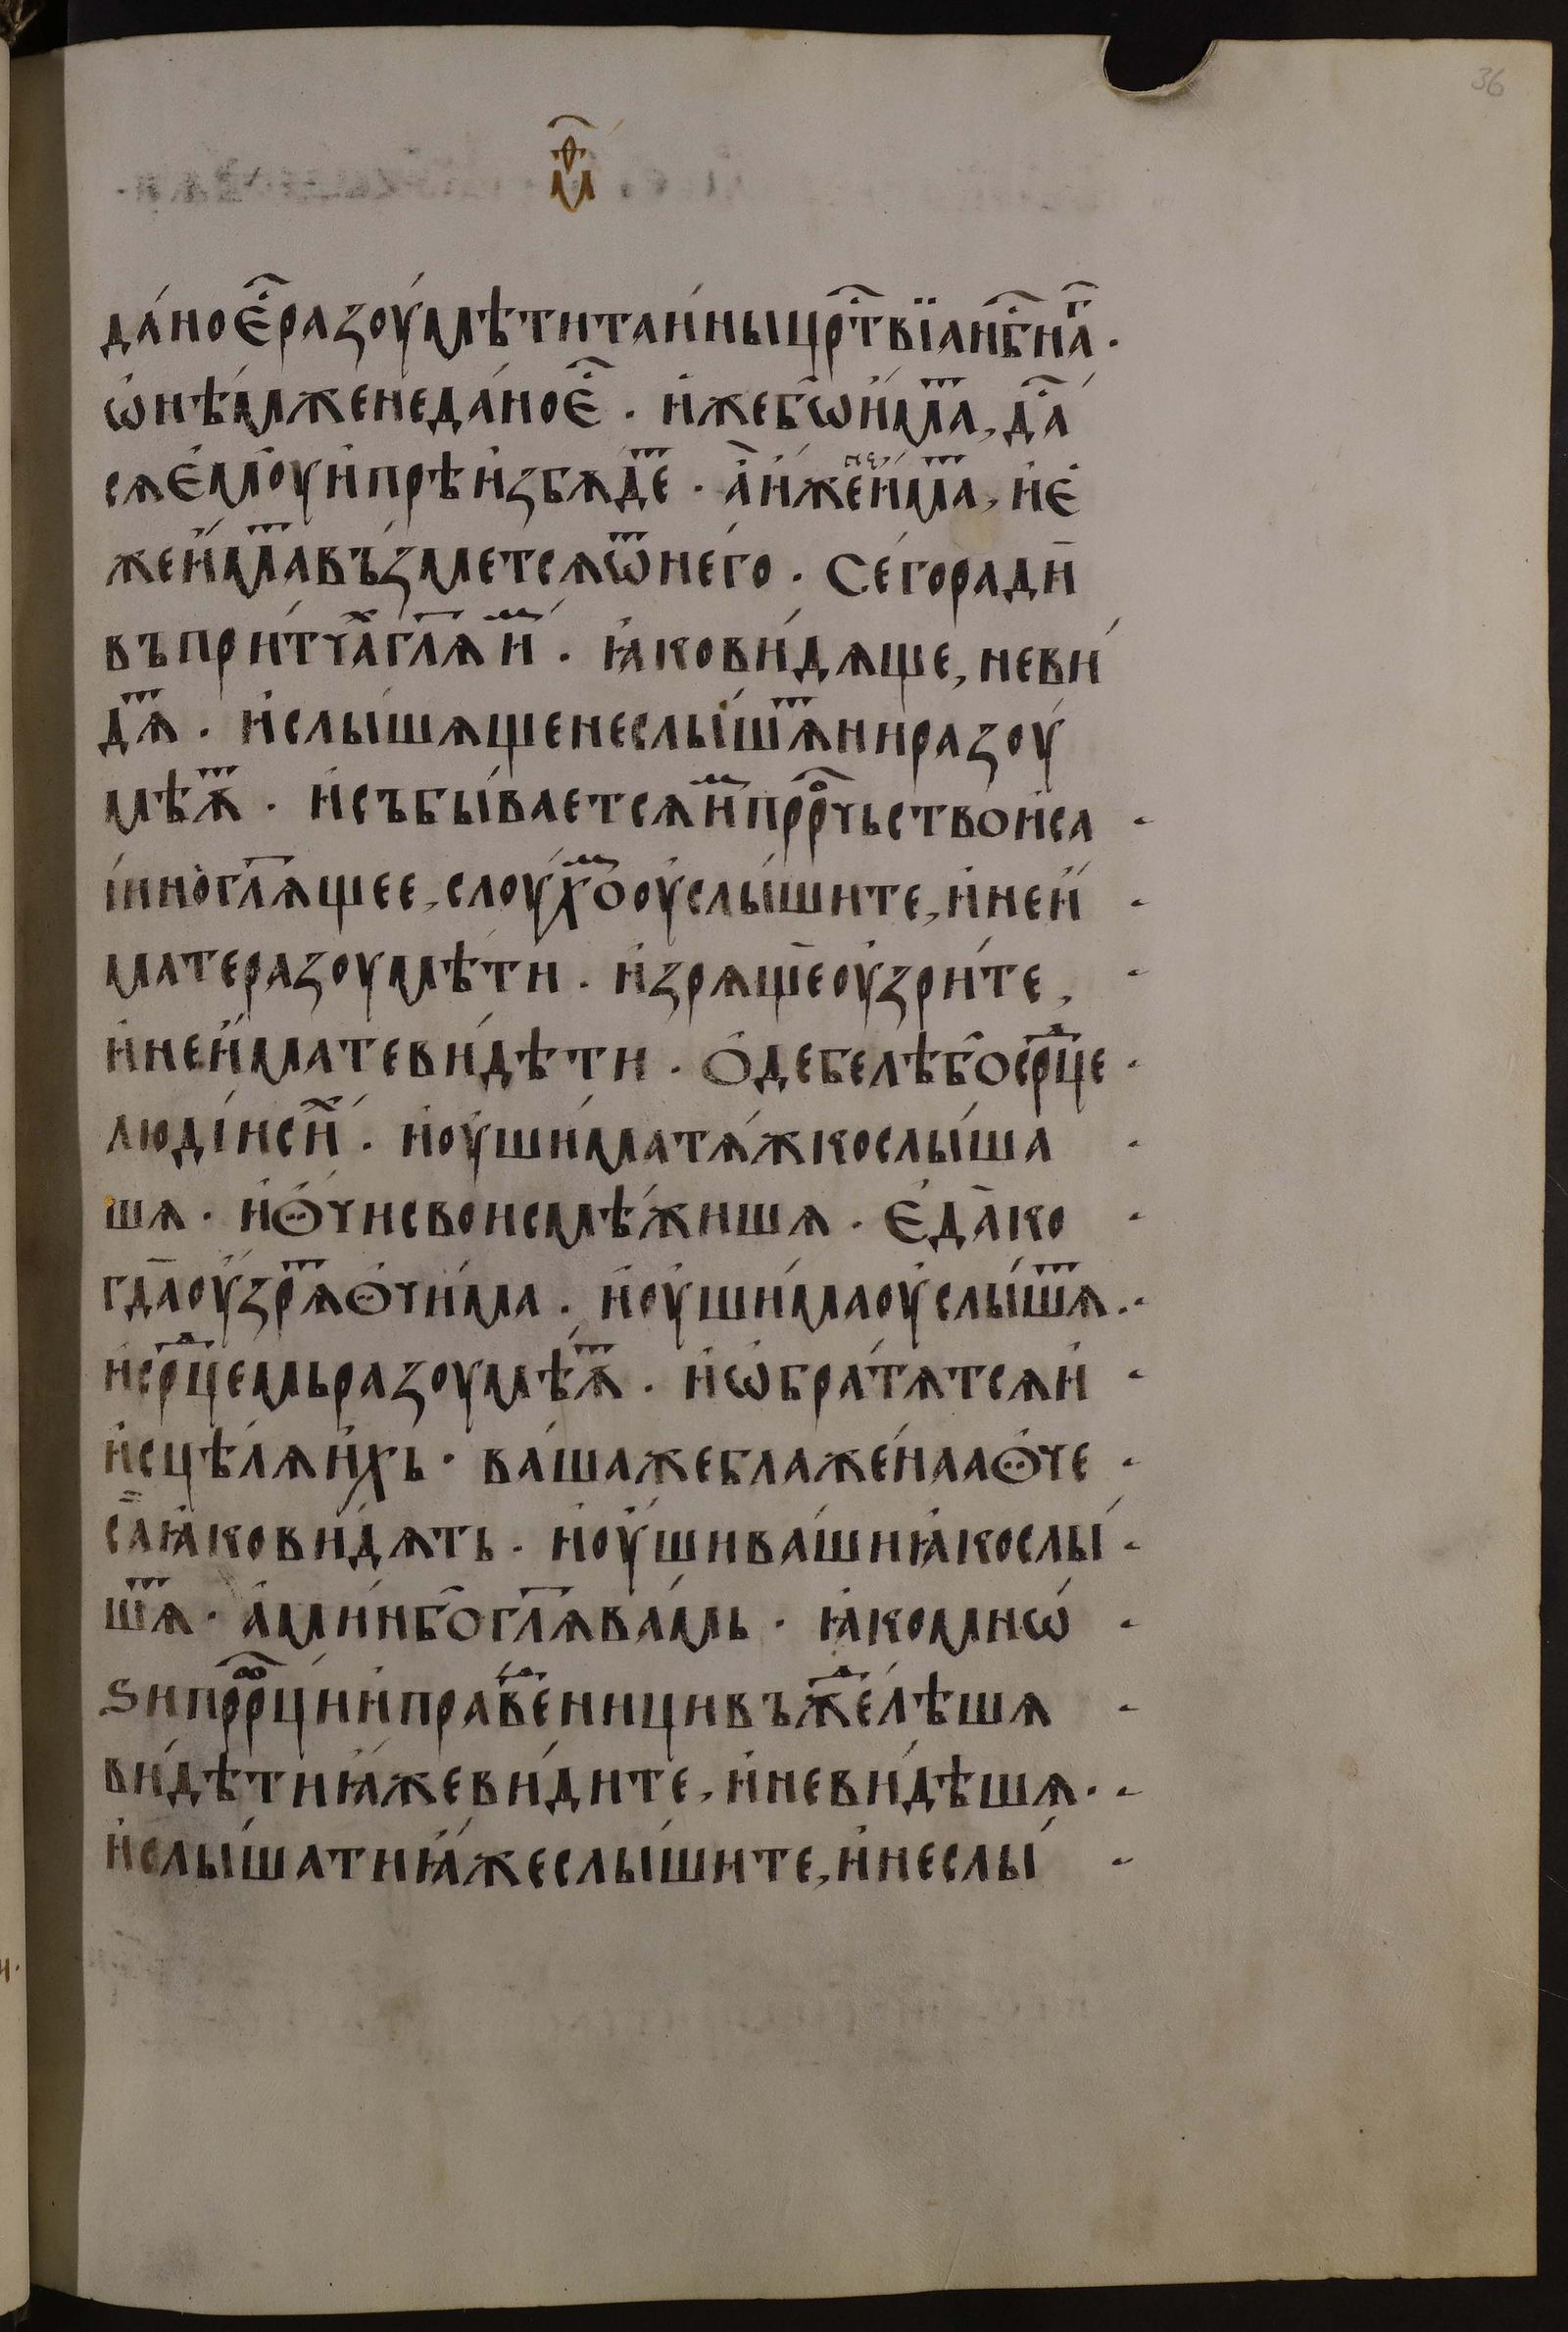 36
м҃т
да́ноє҆ⷭ҇разоу́мѣтитаи́ныцрⷭ҇твїа́нб҇ⷭнаⷢ҇.
ѡ҆нѣ́мженеда́ноє҆ⷭ҇. и҆жебѡ̑и҆́маⷮ, даⷭ҇
сѧе҆моу̑и҆прѣи҆збѫ́деⷮ. а҆и҆́жене́и҆маⷮ, и҆е҆
жеи҆́маⷮвъ́зметсѧѿнего̀. Се́горади
въпри́тчаⷯгл҃ѧи҆́мⷨ. ꙗ҆кови́дѧще, неви́
дѧⷮ. и҆слы́шѧщенеслы́шѧⷮниразоу́
мѣѫⷮ. и҆събы́ваетсѧи҆мⷨпррⷪ҇чьствоисаі
ині҆ногл҃ѧщее, слоу́хоⷨоу҆слы́шите, и҆неи҆́
матеразоумѣ́ти. и҆зрѧщеоу҆зри́те,
и҆неи҆́матеви́дѣти. О҆дебелѣбо̑срⷣце
люді́исиⷯ. и҆оу҆ши́матѧ́жкослы́ша
шѧ. и҆ꙫ҆чисвоисмѣ́жишѧ. Е҆да̀ко
гда̀оу҆́зрѧⷮꙫ҆чи́ма. и҆оу҆ши́маоу҆слы́шѧⷮ.
и҆срⷣцемьразоумѣ́ѫⷮ. и҆ѡ҆бра́тѧтсѧи҆
и҆сцѣлѧи҆́хь. ва́шажеблаже́наꙫ҆че
са̀ꙗ҆кови́дѧть. и҆оу҆́шива́шиꙗ҆кослы́
шѧⷮ. а҆ми́нбо̑гл҃ѧва́мь. ꙗ҆комнѡ́
ѕипррⷪ҇ци́и҆пра́веⷣницивъжеⷣлѣ́шѧ
ви́дѣтиꙗ҆́жеви́дите, и҆неви́дѣшѧ.
и҆слы́шатиꙗ҆́жеслы́шите, и҆неслы́